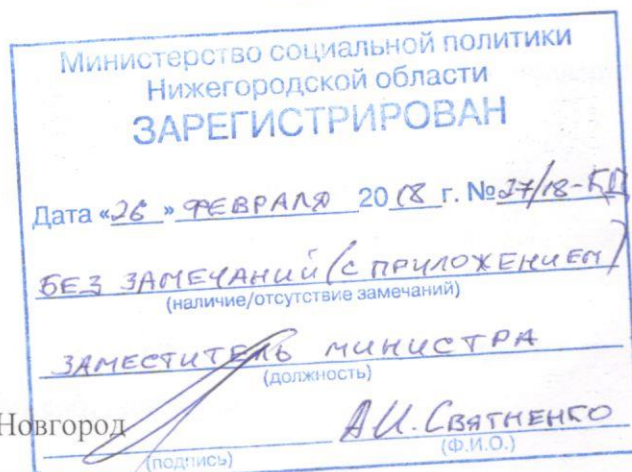 Министерство социальной политики
Нижегородской области
ЗАРЕГИСТРИРОВАН
Дата «26» ФЕВРАЛЯ 2018 г. № 27/18-КД
БЕЗ ЗАМЕЧАНИЙ (С ПРИЛОЖЕНИЕМ)
(наличие/отсутствие замечаний)
ЗАМЕСТИТЕЛЬ МИНИСТРА
(должность)
Новгород
А.И. СВЯТНЕНКО
(подпись) (Ф.И.О.)